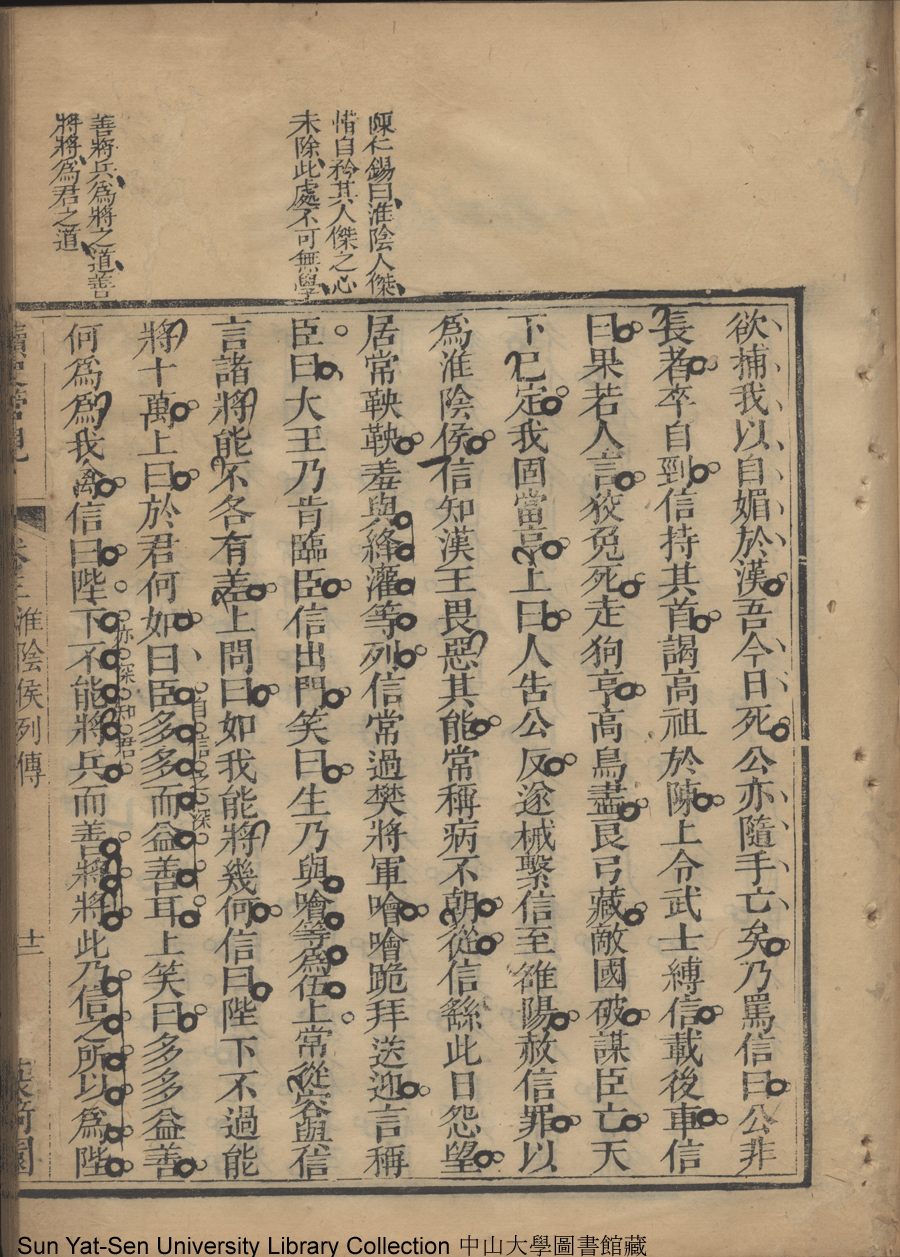 陳仁錫曰淮陰人傑
惜自矜其人傑之心
未除此處不可無學
善將兵爲將之道善
將將爲君之道
欲捕我以自媚於漢吾今日死公亦隨手亡矣乃罵信曰公非
長者卒自剄信持其首謁高祖於陳上令武士縛信載後車信
曰果若人言狡兔死走狗亨高鳥盡良弓藏敵國破謀臣亡天
下已定我固當亨上曰人告公反遂械繫信至雒陽赦信罪以
爲淮陰侯信知漢王畏惡其能常稱病不朝從信繇此日怨望
居常鞅鞅羞與絳灌等列信常過樊將軍噲噲跪拜送迎言稱
臣曰大王乃肯臨臣信出門笑曰生乃與噲等爲伍上常從容與信
言諸將能不各有差上問曰如我能將幾何信曰陛下不過能
將十萬上曰於君何如曰臣多多而益善耳上笑曰多多益善
自信之深
何爲爲我禽信曰陛下不能將兵而善將將此乃信之所以爲陛
亦深知君
淮陰侯列傳
十二
Sun Yat-Sen University Library Collection 中山大學圖書館藏